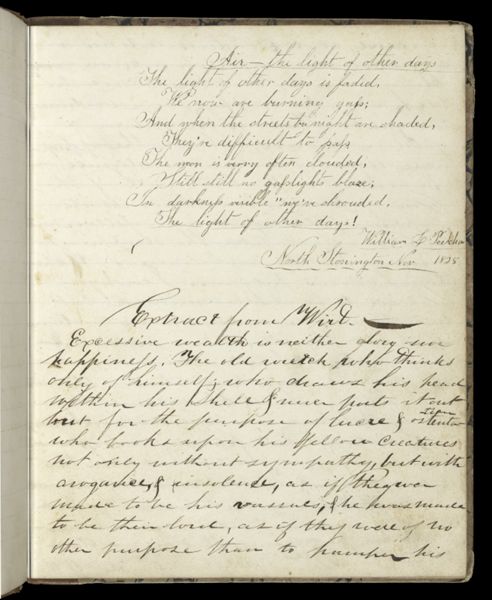 Air — the light of other days
The light of other days is faded,
We now are burning gass;
And when the streets by night are shaded,
They're difficult to pass
The moon is very often clouded,
Still still no gasslights blaze;
In darkness visible "we're shrouded,
The light of other days!
William
North Stonington Nov 1838
Extract from Wirt.
Excessive wealth is neither glory nor
happiness. The old wretch who thinks
only of himself; who draws his head
within his shell & never puts it out
but for the purpose of lucre & ostentation
who looks upon his fellow creatures
not only without sympathy, but with
arrogance, & insolence, as if they were
made to be his vassals, & he was made
to be their lord, as if they were of no
other purpose than to pamper his